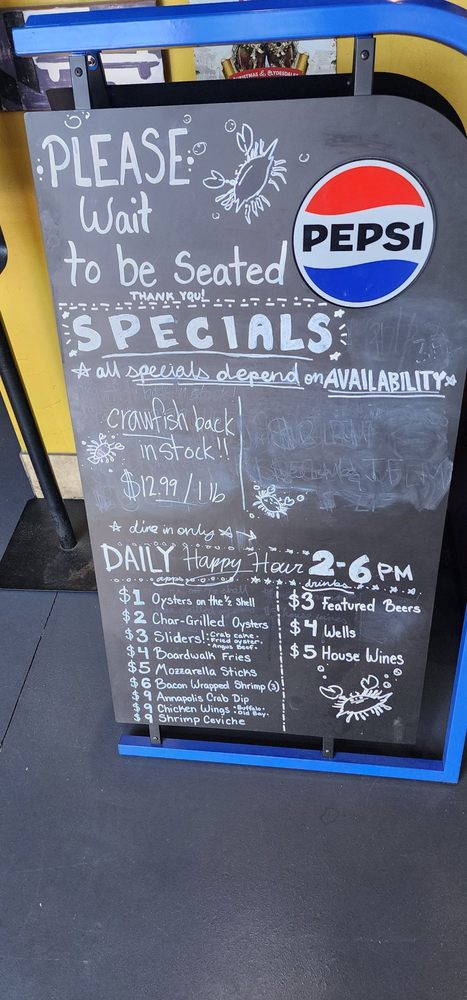 CHRISTMAS & CLYDESDALES
PLEASE
Wait
to be Seated
THANK YOU!
PEPSI
SPECIALS
all specials depend on AVAILABILITY
crawfish back
in stock!!
$12.99 / 1 lb
dine in only
DAILY Happy Hour 2-6 PM
apps
drinks
$1 Oysters on the ½ Shell
$2 Char-Grilled Oysters
$3 Sliders: • Crab cake •
• Fried oyster •
• Angus Beef •
$4 Boardwalk Fries
$5 Mozzarella Sticks
$6 Bacon Wrapped Shrimp (3)
$9 Annapolis Crab Dip
$9 Chicken Wings • Buffalo •
• Old Bay •
$9 Shrimp Ceviche
$3 Featured Beers
$4 Wells
$5 House Wines